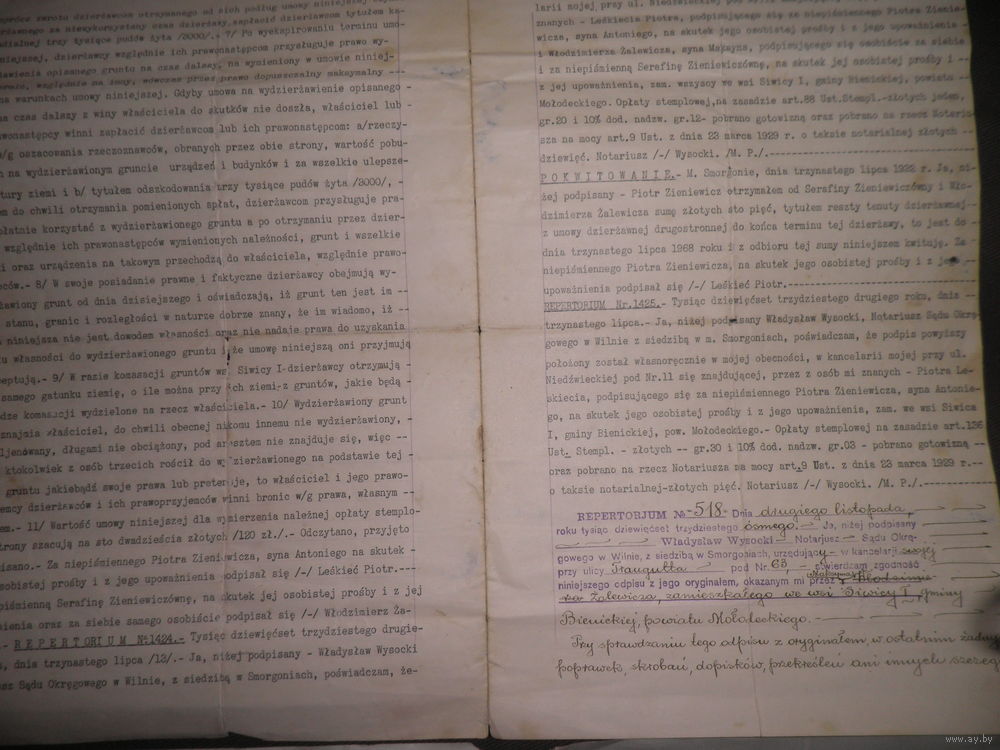 oprócz zwrotu dzierżawcom otrzymanego od nich podług umowy niniejszej
za niewykorzystany czas dzierżawy, zapłacić dzierżawcom tytułem ka-
trzy tysiące pudów żyta /3000/.- 7/ Po wyekspirowaniu terminu umo-
niniejszej, dzierżawcy względnie ich prawonastępcom przysługuje prawo wy-
opisanego gruntu na czas dalszy, na wymieniony w umowie niniej-
wówczas przez prawo dopuszczalny maksymalny ---
na warunkach umowy niniejszej. Gdyby umowa na wydzierżawienie opisanego -
na czas dalszy z winy właściciela do skutków nie doszła, właściciel lub -
winni zapłacić dzierżawcom lub ich prawonastępcom: a/rzeczy-
w/g oszacowania rzeczoznawców, obranych przez obie strony, wartość pobu-
na wydzierżawionym gruncie urządzeń i budynków i za wszelkie ulepsze-
tury ziemi i b/ tytułem odszkodowania trzy tysiące pudów żyta /3000/, -
do chwili otrzymania pomienionych spłat, dzierżawcom przysługuje pra-
korzystać z wydzierżawionego gruntu a po otrzymaniu przez dzier-
względnie ich prawonastępców wymienionych należności, grunt i wszelkie
i oraz urządzenia na takowym przechodzą do właściciela, względnie prawo-
8/ W swoje posiadanie prawne i faktyczne dzierżawcy obejmują wy-
grunt od dnia dzisiejszego i oświadczają, iż grunt ten jest im --
stanu, granic i rozległości w naturze dobrze znany, że im wiadomo, iż --
niniejsza nie jest dowodem własności oraz nie nadaje prawa do uzyskania
własności do wydzierżawionego gruntu i że umowę niniejszą oni przyjmują
9/ W razie komasacji gruntów wsi Siwicy I-dzierżawcy otrzymują -
samego gatunku ziemię, o ile można przy ich ziemi-z gruntów, jakie będą -
komasacji wydzielone na rzecz właściciela.- 10/ Wydzierżawiony grunt
właściciel, do chwili obecnej nikomu innemu nie wydzierżawiony, -
długami nie obciążony, pod aresztem nie znajduje się, więc --
ktokolwiek z osób trzecich rościł do wydzierżawionego na podstawie tej -
gruntu jakiebądź swoje prawa lub pretensje, to właściciel i jego prawo-
dzierżawców i ich prawoprzyjemców winni bronic w/g prawa, własnym --
11/ Wartość umowy niniejszej dla wymierzenia należnej opłaty stemplo-
strony szacują na sto dwadzieścia złotych /120 zł./.- Odczytano, przyjęto
Za niepiśmiennego Piotra Zieniewicza, syna Antoniego na skutek -
osobistej prośby i z jego upoważnienia podpisał się /-/ Leśkieć Piotr.---
Serafinę Zieniewiczównę, na skutek jej osobistej prośby i z jej
oraz za siebie samego osobiście podpisał się /-/ Włodzimierz Ża-
REPERTORIUM Nr.1424.- Tysiąc dziewięćset trzydziestego drugie-
dnia trzynastego lipca /12/.- Ja, niżej podpisany - Władysław Wysocki
Sądu Okręgowego w Wilnie, z siedzibą w Smorgoniach, poświadczam, że-
larii mojej przy ul. Niedźwieckiej
znanych - Leśkiecia Piotra, podpisującego się za niepiśmiennego Piotra Zienie-
wicza, syna Antoniego, na skutek jego osobistej prośby i z jego upoważnienia
i Włodzimierza Żalewicza, syna Maksyma, podpisującego się osobiście za siebie
i za niepiśmienną Serafinę Zieniewiczównę, na skutek jej osobistej prośby i --
z jej upoważnienia, zam. wszyscy we wsi Siwicy I, gminy Bienickiej, powiatu -
Mołodeckiego. Opłaty stemplowej, na zasadzie art.88 Ust.Stempl.-złotych jeden,
gr.20 i 10% dod. nadzw. gr.12- pobrano gotowizną oraz pobrano na rzecz Notariu-
sza na mocy art.9 Ust. z dnia 23 marca 1929 r. o taksie notarialnej złotych --
dziewięć. Notariusz /-/ Wysocki. /M. P./.---
POKWITOWANIE.- M. Smorgonie, dnia trzynastego lipca 1922 r. Ja, ni-
żej podpisany - Piotr Zieniewicz otrzymałem od Serafiny Zieniewiczówny i Wło-
dzimierza Żalewicza sumę złotych sto pięć, tytułem reszty tenuty dzierżawnej--
z umowy dzierżawnej drugostronnej do końca terminu tej dzierżawy, to jest do -
dnia trzynastego lipca 1968 roku i z odbioru tej sumy niniejszem kwituję. Za -
niepiśmiennego Piotra Zieniewicza, na skutek jego osobistej prośby i z jego --
upoważnienia podpisał się /-/ Leśkieć Piotr.---
REPERTORIUM Nr.1425.- Tysiąc dziewięćset trzydziestego drugiego roku, dnia --
trzynastego lipca.- Ja, niżej podpisany Władysław Wysocki, Notariusz Sądu Okrę-
gowego w Wilnie z siedzibą w m. Smorgoniach, poświadczam, że podpis powyższy
położony został własnoręcznie w mojej obecności, w kancelarii mojej przy ul.
Niedźwieckiej pod Nr.11 się znajdującej, przez z osób mi znanych - Piotra Le-
skiecia, podpisującego się za niepiśmiennego Piotra Zieniewicza, syna Antonie-
go, na skutek jego osobistej prośby i z jego upoważnienia, zam. we wsi Siwica
I, gminy Bienickiej, pow. Mołodeckiego.- Opłaty stemplowej na zasadzie art.126
Ust. Stempl. - złotych -- gr.30 i 10% dod. nadzw. gr.03 - pobrano gotowizną --
oraz pobrano na rzecz Notariusza na mocy art.9 Ust. z dnia 23 marca 1929 r.--
o taksie notarialnej-złotych pięć. Notariusz /-/ Wysocki. /M. P./.---
REPERTORJUM № 518. Dnia drugiego listopada,
roku tysiąc dziewięćset trzydziestego ósmego. Ja, niżej podpisany
Władysław Wysocki – Notarjusz – Sądu Okrę-
gowego w Wilnie, z siedzibą w Smorgoniach, urzędujący – w kancelarji swojej
przy ulicy Traugutta – pod Nr. 63 – stwierdzam zgodność
niniejszego odpisu z jego oryginałem, okazanym mi przez Włodzimie-
rza Żalewicza, zamieszkałego we wsi Siwicy I, gminy
Bienickiej, powiatu Mołodeckiego. –
Przy sprawdzaniu tego odpisu z oryginałem w ostatnim żadnych
poprawek, skrobań, dopisków, przekreśleń ani innych szczegó
www.ay.by